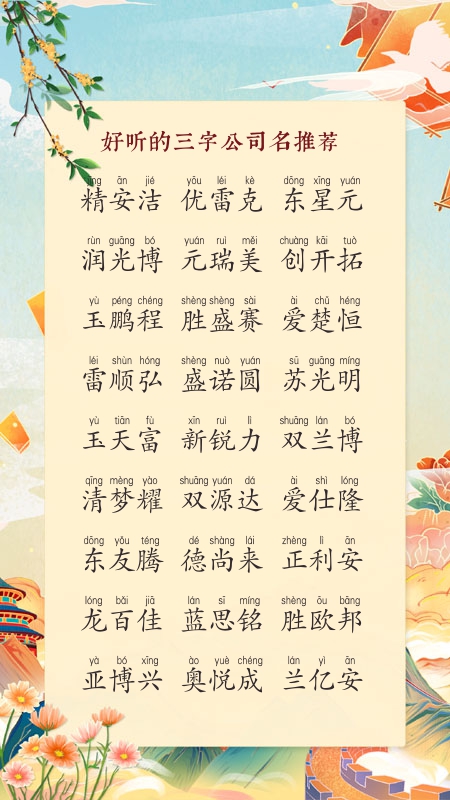 好听的三字公司名推荐
jīng ān jié yōu léi kè dōng xīng yuán
精安洁 优雷克 东星元
rùn guāng bó yuán ruì měi chuàng kāi tuò
润光博 元瑞美 创开拓
yù péng chéng shèng shèng sài ài chǔ héng
玉鹏程 胜盛赛 爱楚恒
léi shùn hóng shèng nuò yuán sū guāng míng
雷顺弘 盛诺圆 苏光明
yù tiān fù xīn ruì lì shuāng lán bó
玉天富 新锐力 双兰博
qīng mèng yào shuāng yuán dá ài shì lóng
清梦耀 双源达 爱仕隆
dōng yǒu téng dé shàng lái zhèng lì ān
东友腾 德尚来 正利安
lóng bǎi jiā lán sī míng shèng ōu bāng
龙百佳 蓝思铭 胜欧邦
yà bó xīng ào yuè chéng lán yì ān
亚博兴 奥悦成 兰亿安